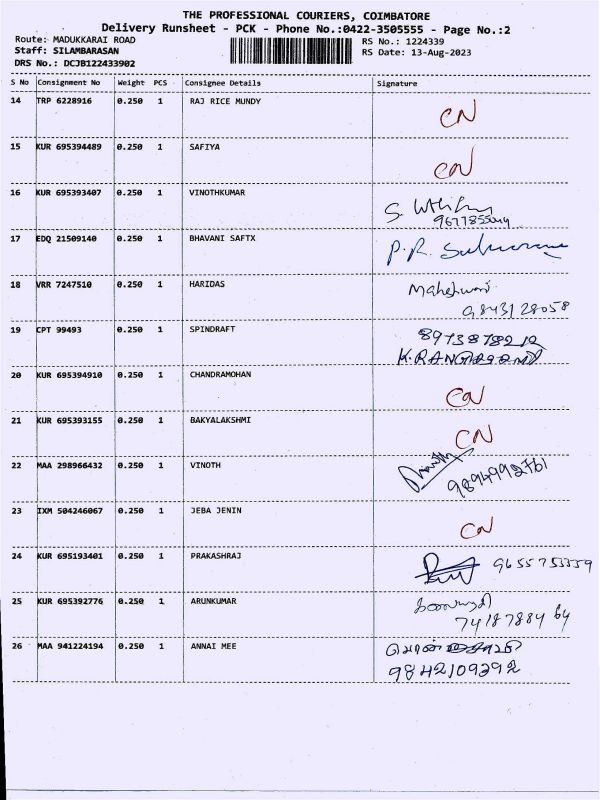 THE PROFESSIONAL COURIERS, COIMBATORE
Delivery Runsheet - PCK - Phone No.:0422-3505555 - Page No.:2
Route: MADUKKARAI ROAD
RS No.: 1224339
Staff: SILAMBARASAN
RS Date: 13-Aug-2023
DRS No.: DCJB122433902
S No Consignment No Weight PCS Consignee Details Signature
14 TRP 6228916 0.250 1 RAJ RICE MUNDY CN
15 KUR 695394489 0.250 1 SAFIYA CN
16 KUR 695393407 0.250 1 VINOTHKUMAR S.
17 EDQ 21509140 0.250 1 BHAVANI SAFTX P.R.
18 VRR 7247510 0.250 1 HARIDAS Maheswari
9843128058
19 CPT 99493 0.250 1 SPINDRAFT
20 KUR 695394910 0.250 1 CHANDRAMOHAN CN
21 KUR 695393155 0.250 1 BAKYALAKSHMI CN
22 MAA 298966432 0.250 1 VINOTH 9894992761
23 IXM 504246067 0.250 1 JEBA JENIN CN
24 KUR 695193401 0.250 1 PRAKASHRAJ
25 KUR 695392776 0.250 1 ARUNKUMAR
26 MAA 941224194 0.250 1 ANNAI MEE
9842109392